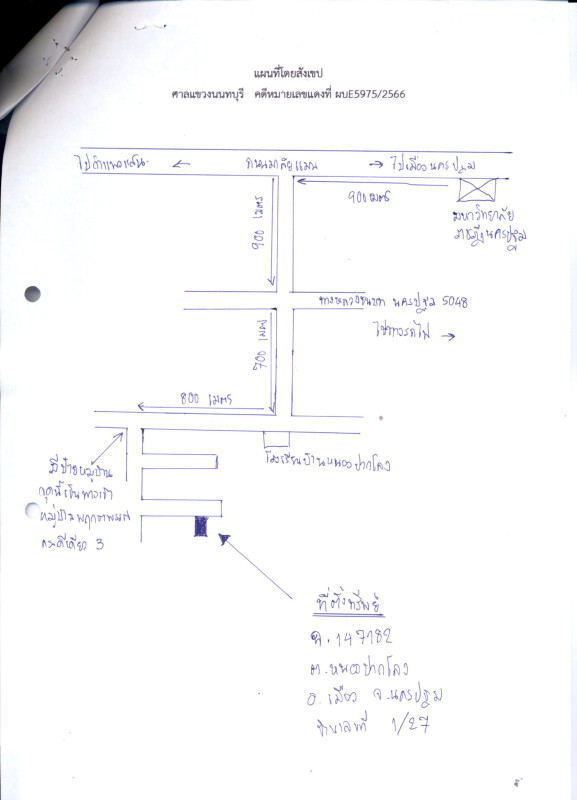 แผนที่โดยสังเขป
ศาลแขวงนนทบุรี คดีหมายเลขแดงที่ ผบE5975/2566
ไปกำแพงแสน
ถนนมาลัยแมน
ไปเมืองนครปฐม
900 เมตร
มหาวิทยาลัย
ราชภัฏนครปฐม
900 เมตร
ทางหลวงชนบท นครปฐม 5048
ไปทางรถไฟ
700 เมตร
800 เมตร
โรงเรียนบ้านหนองปากโลง
มีป้ายหมู่บ้าน
จุดนี้เป็นทางเข้า
หมู่บ้าน พฤกษา
3
ที่ตั้งทรัพย์
ฉ. 147182
ต. หนองปากโลง
อ. เมือง จ. นครปฐม
บ้านเลขที่ 1/27